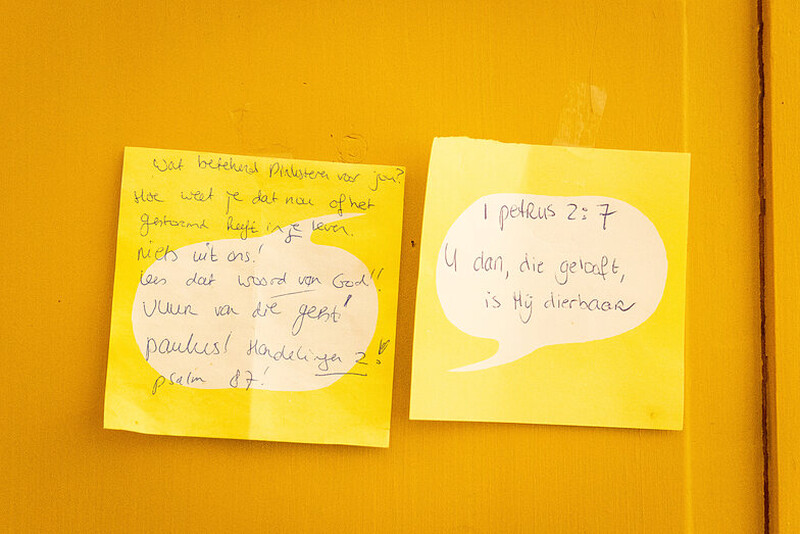 Wat betekend Pinksteren voor jou?
Hoe weet je dat nou of het
gestormd heeft in je leven.
niets uit ons!
Lees dat woord van God!!
Vuur van die geest!
paulus! Handelingen 2!
psalm 87!
1 petrus 2:7
U dan, die gelooft,
is Hij dierbaar